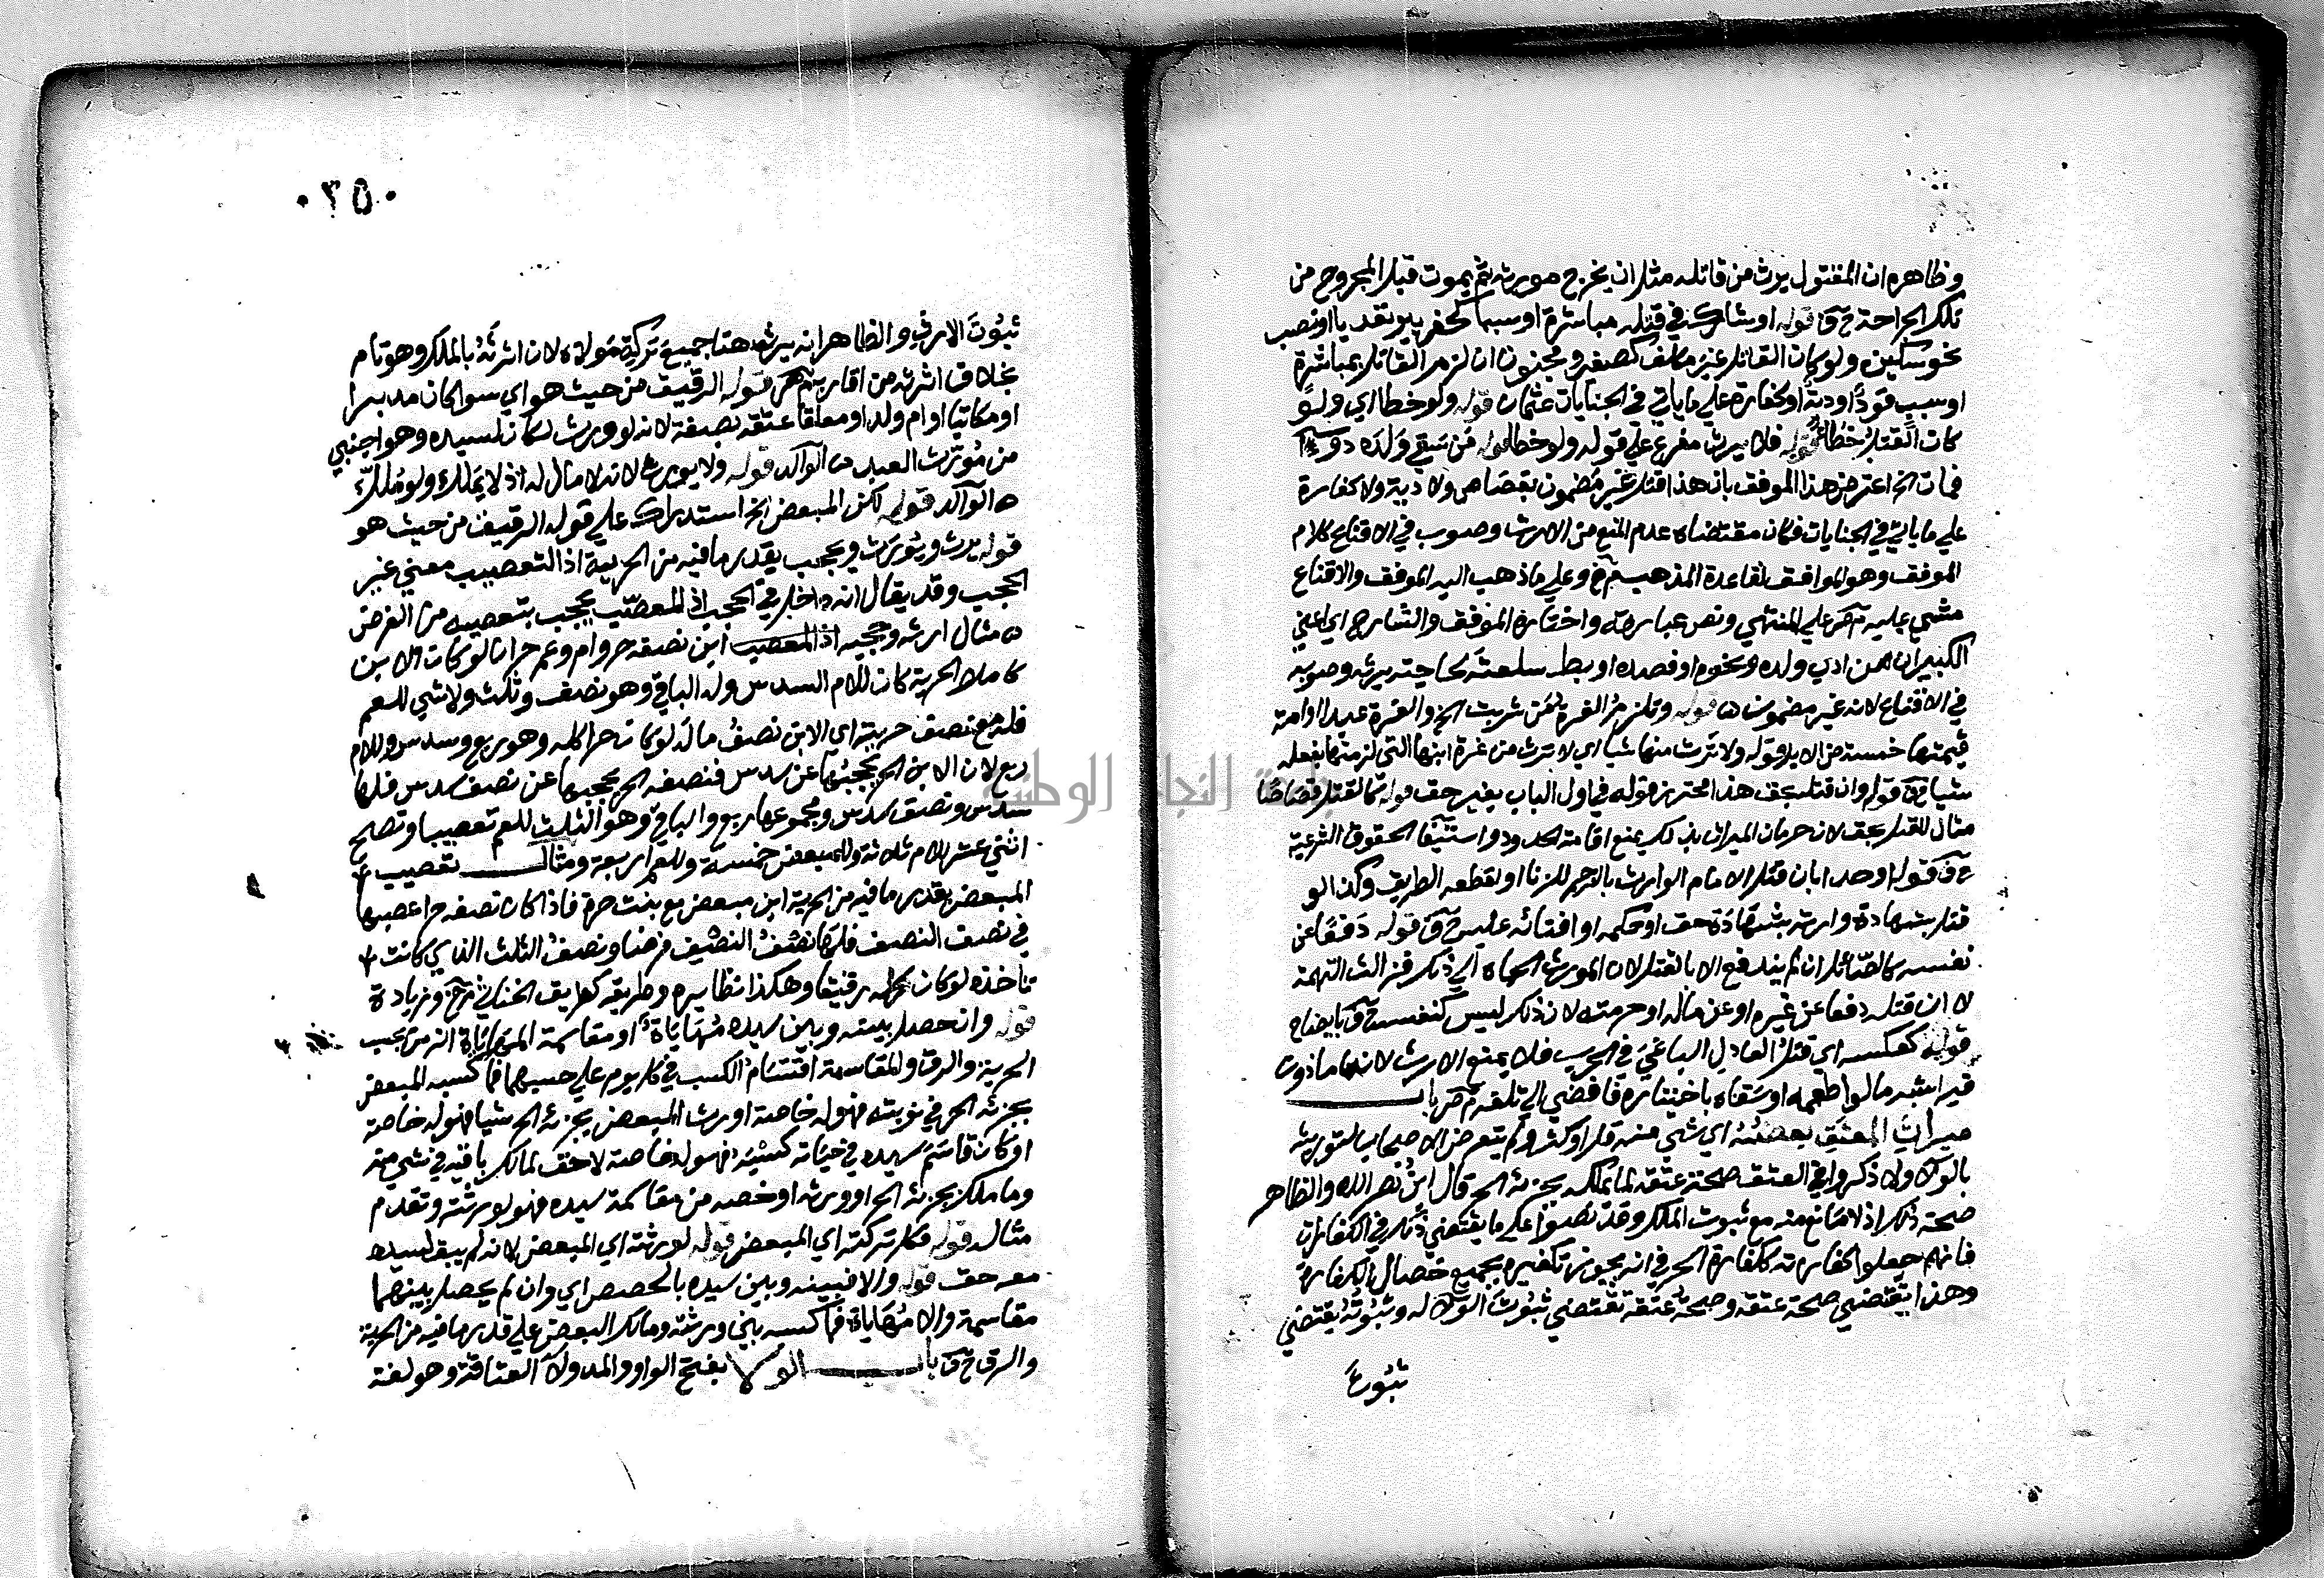 وظاهره ان المقتول يرث من قاتله مثل ان يجرح مورثه ثم يموت قبل المجروح من
تلك الجراحة ح ف قوله او شارك في قتله مباشرة او سببا كحفر بير تعديا او نصب
نحو سكين ولو كان القاتل غير مكلف كصغير ومجنون ان لزم القاتل بمباشرة
او سبب قودا او دية او كفارة علي ما ياتي في الجنايات عثمان قوله ولو خطا اي ولو
كان القتل خطا قوله فلا يرث مفرع علي قوله ولو خطا قوله من سقي ولده دوآ
فمات الخ اعترض هذا الموفق بان هذا قتل غير مضمون بقصاص ولا دية ولا كفارة
علي ما ياتي في الجنايات فكان مقتضاه عدم المنع من الارث وصوب في الاقناع كلام
الموفق وهو الموافق لقاعدة المذهب م خ وعلي ما ذهب اليه الموفق والاقناع
مشي عليه م ص علي المنتهي ونص عبارته واختاره الموفق والشارح اي اعني
الكبير ان من ادب ولده ونحوه او فصده او بط سلعته لحاجته يرثه وصوبه
في الاقناع لانه غير مضمون قوله وتلزم الغرة لمن شربت الخ والغرة عبدا او امة
قيمتها خمسة من الابل قوله ولا ترث منها شيا اي لا ترث من غرة ابنها التي لزمتها بفعلها
شيا ح ف قوله وان قتله بحق هذا محترز قوله في اول الباب بغير حق قوله كالقتل قصاصا
مثال للقتل بحق لان حرمان الميراث بذلك يمنع اقامة الحدود واستيفا الحقوق الشرعية
ح ف قوله او حدا بان قتل الامام الوارث بالرجم للزنا او بقطعه الطريق وكذا لو
قتل بشهادة وارث بشهادة حق او حكمه او افتائه عليه ح ف قوله دفعا عن
نفسه كالصائل ان لم يندفع الا بالقتل لان المورث الجاه الي ذلك فزالت التهمة
لا ان قتله دفعا عن غيره او عن ماله او حرمته لان ذلك ليس كنفسه ح ف بايضاح
قوله كعكسه اي قتل العادل الباغي في الحرب فلا يمنع الارث لانهما ماذون
فيه اشبه ما لو اطعمه او سقاه باختياره فافضي الي تلفه م ص باب
ميراث المعتق بعضه اي شي منه قل او كثر ولم يتعرض الاصحاب لتوريثه
بالولا ولا ذكروا في العتق صحة عتقه لما يملكه بجزئه الحر قال ابن نصر الله والظاهر
صحة ذلك اذ لا مانع منه مع ثبوت الملك وقد نصوا علي ما يقتضي ذلك في الكفارات
فانهم جعلوا كفارته ككفارة الحر في انه يجوز تكفيره بجميع خصال الكفارة
وهذا يقتضي صحة عتقه وصحة عتقه تقتضي ثبوت الولا له وثبوته يقتضي
ثبوت
٠٢٥٠
ثبوت الارث والظاهر انه يرث هنا جميع تركة مولاه لان ارثه بالملك وهو تام
بخلاف ارثه من اقاربه م ص قوله الرقيق من حيث هو اي سوا كان مدبرا
او مكاتبا او ام ولد او معلقا عتقه بصفة لانه لو ورث لكان لسيده وهو اجنبي
من مورث العبد الوالد قوله ولا يورث لانه لا مال له اذ لا يملك ولو ملك
الوالد قوله لكن المبعض الخ استدراك علي قوله الرقيق من حيث هو
قوله يرث ويورث ويحجب بقدر ما فيه من الحرية اذ التعصيب معني غير
الحجب وقد يقال انه داخل في الحجب اذ المعصب يحجب بتعصيبه من الفرض
مثال ارثه وحجبه اذ المعصب ابن نصفه حر وام وعم حران لو كان الابن
كاملا الحرية كان للام السدس وله الباقي وهو نصف وثلث ولا شي للعم
فله مع نصف حريته اي الابن نصف ما له لو كان حرا كله وهو ربع وسدس وللام
ربع لان الابن الحر يحجبها عن سدس فنصفه الحر يحجبها عن نصف سدس فلها
سدس ونصف سدس ومجموعها ربع والباقي وهو الثلث للعم تعصيبا وتصح
اثني عشر للام ثلاثة وللمبعض خمسة وللعم اربعة ومثال تعصيب
المبعض بقدر ما فيه من الحرية ابن مبعض مع بنت حرة فاذا كان نصفه حرا عصبها
في نصف النصف فلها نصف النصف فرضا ونصف الثلث الذي كانت
تاخذه لو كان كله رقيقا وهكذا نظايره وطريقه كطريق الخناثي م خ وزيادة
قوله وان حصل بينه وبين سيده مهاياة او مقاسمة المهاياة الزمن بحسب
الحرية والرق والمقاسمة اقتسام الكسب في كل يوم علي حسبهما فما كسبه المبعض
بجزئه الحر في نوبته فهو له خاصة او ورث المبعض بجزئه الحر شيا فهو له خاصة
او كان قاسم سيده في حياته كسبه فهو له خاصة لا حق لمالك باقيه في شي منه
وما ملك بجزئه الحر او ورثه او خصه من مقاسمة سيده فهو لورثته وتقدم
مثاله قوله فكل تركته اي المبعض قوله لورثته اي المبعض لانه لم يبق لسيده
معه حق قوله والا فبينه وبين سيده بالحصص اي وان لم يحصل بينهما
مقاسمة ولا مهاياة فما كسبه بين ورثته ومالك البعض علي قدر ما فيه من الحرية
والرق ح ف باب الولا بفتح الواو والمد ولا العتاقة وهو لغة